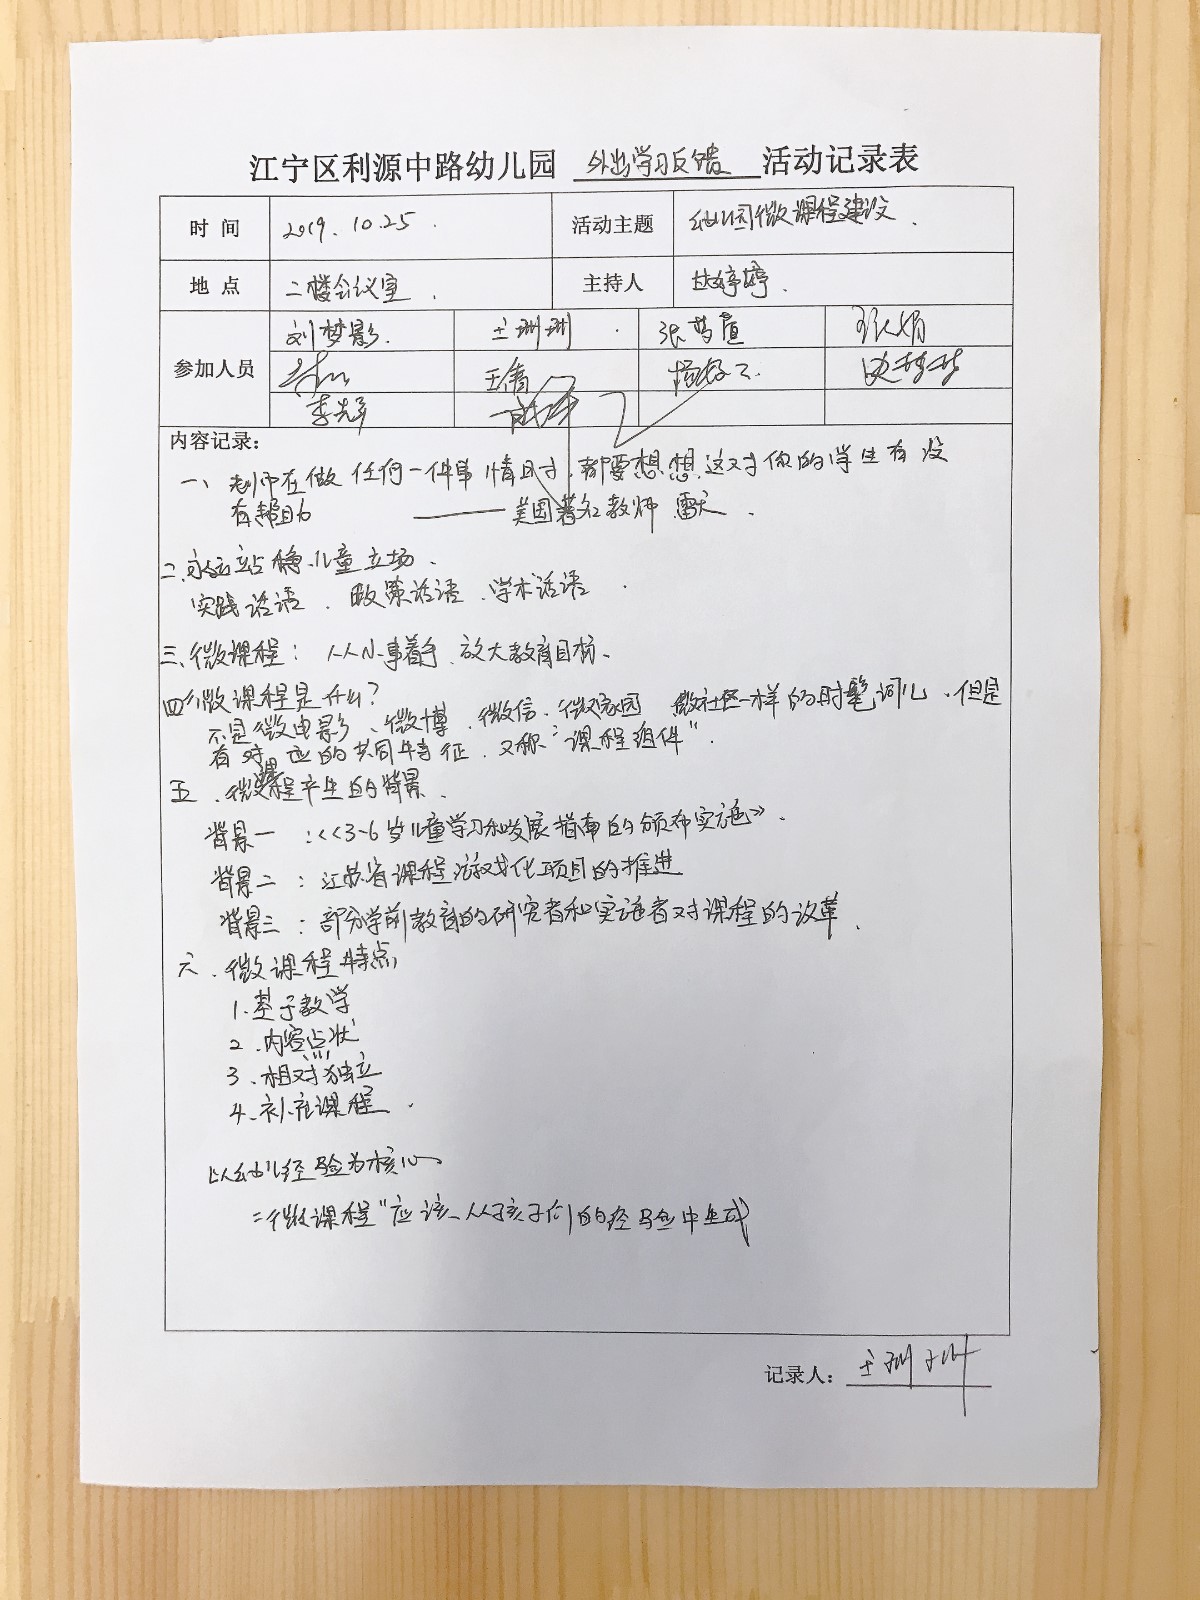 江宁区利源中路幼儿园 外出学习反馈 活动记录表
时 间 2019.10.25. 活动主题 幼儿园微课程建设.
地 点 二楼会议室. 主持人 婷婷.
参加人员 刘梦影. 王珊珊. 张梦
王倩
李
内容记录：
一、老师在做任何一件事情时,都要想想这对你的学生有没
有帮助 ——— 美国著名教师 雷夫.
二.永远站稳儿童立场.
实践话语、政策话语、学术话语.
三、微课程: 从小事着手、放大教育目标、
四、微课程是什么?
不是微电影、微博、微信、微家园 微社区一样的时髦词儿、但是
有对应的共同特征、又称“课程组件”.
五、微课程产生的背景.
背景一 :《3-6岁儿童学习和发展指南的颁布实施》.
背景二 : 江苏省课程游戏化项目的推进
背景三 : 部分学前教育的研究者和实施者对课程的改革.
六、微课程特点
1.基于教学
2.内容点状
3.相对独立
4.补充课程.
以幼儿经验为核心
“微课程”应该从孩子们的经验中生成
记录人: 王珊珊